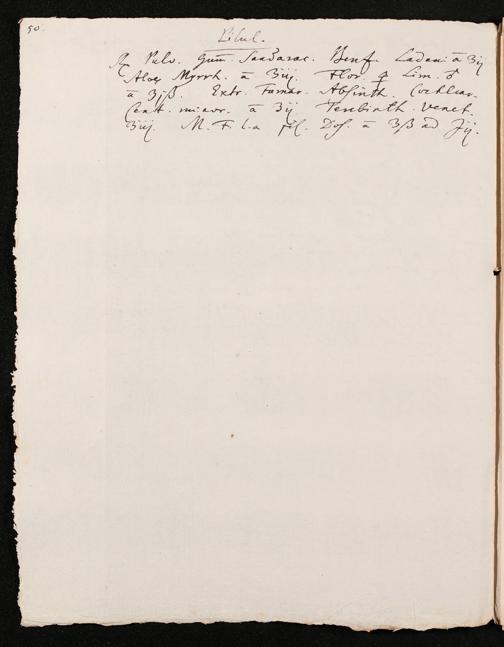 50.
Pilul.
℞ Pulv. Gum̄. Sandarac. Benz. Ladani ā ʒij
Aloes Myrrh. ā ʒiij. Flor. 🜍 Lim. ♂
ā ʒjß. Extr. Fumar. Absinth. Cochlear.
Cent. minor. ā ʒij Terebinth. Venet.
ʒiij. M. F. l. a pil. Dos. ā ʒß ad